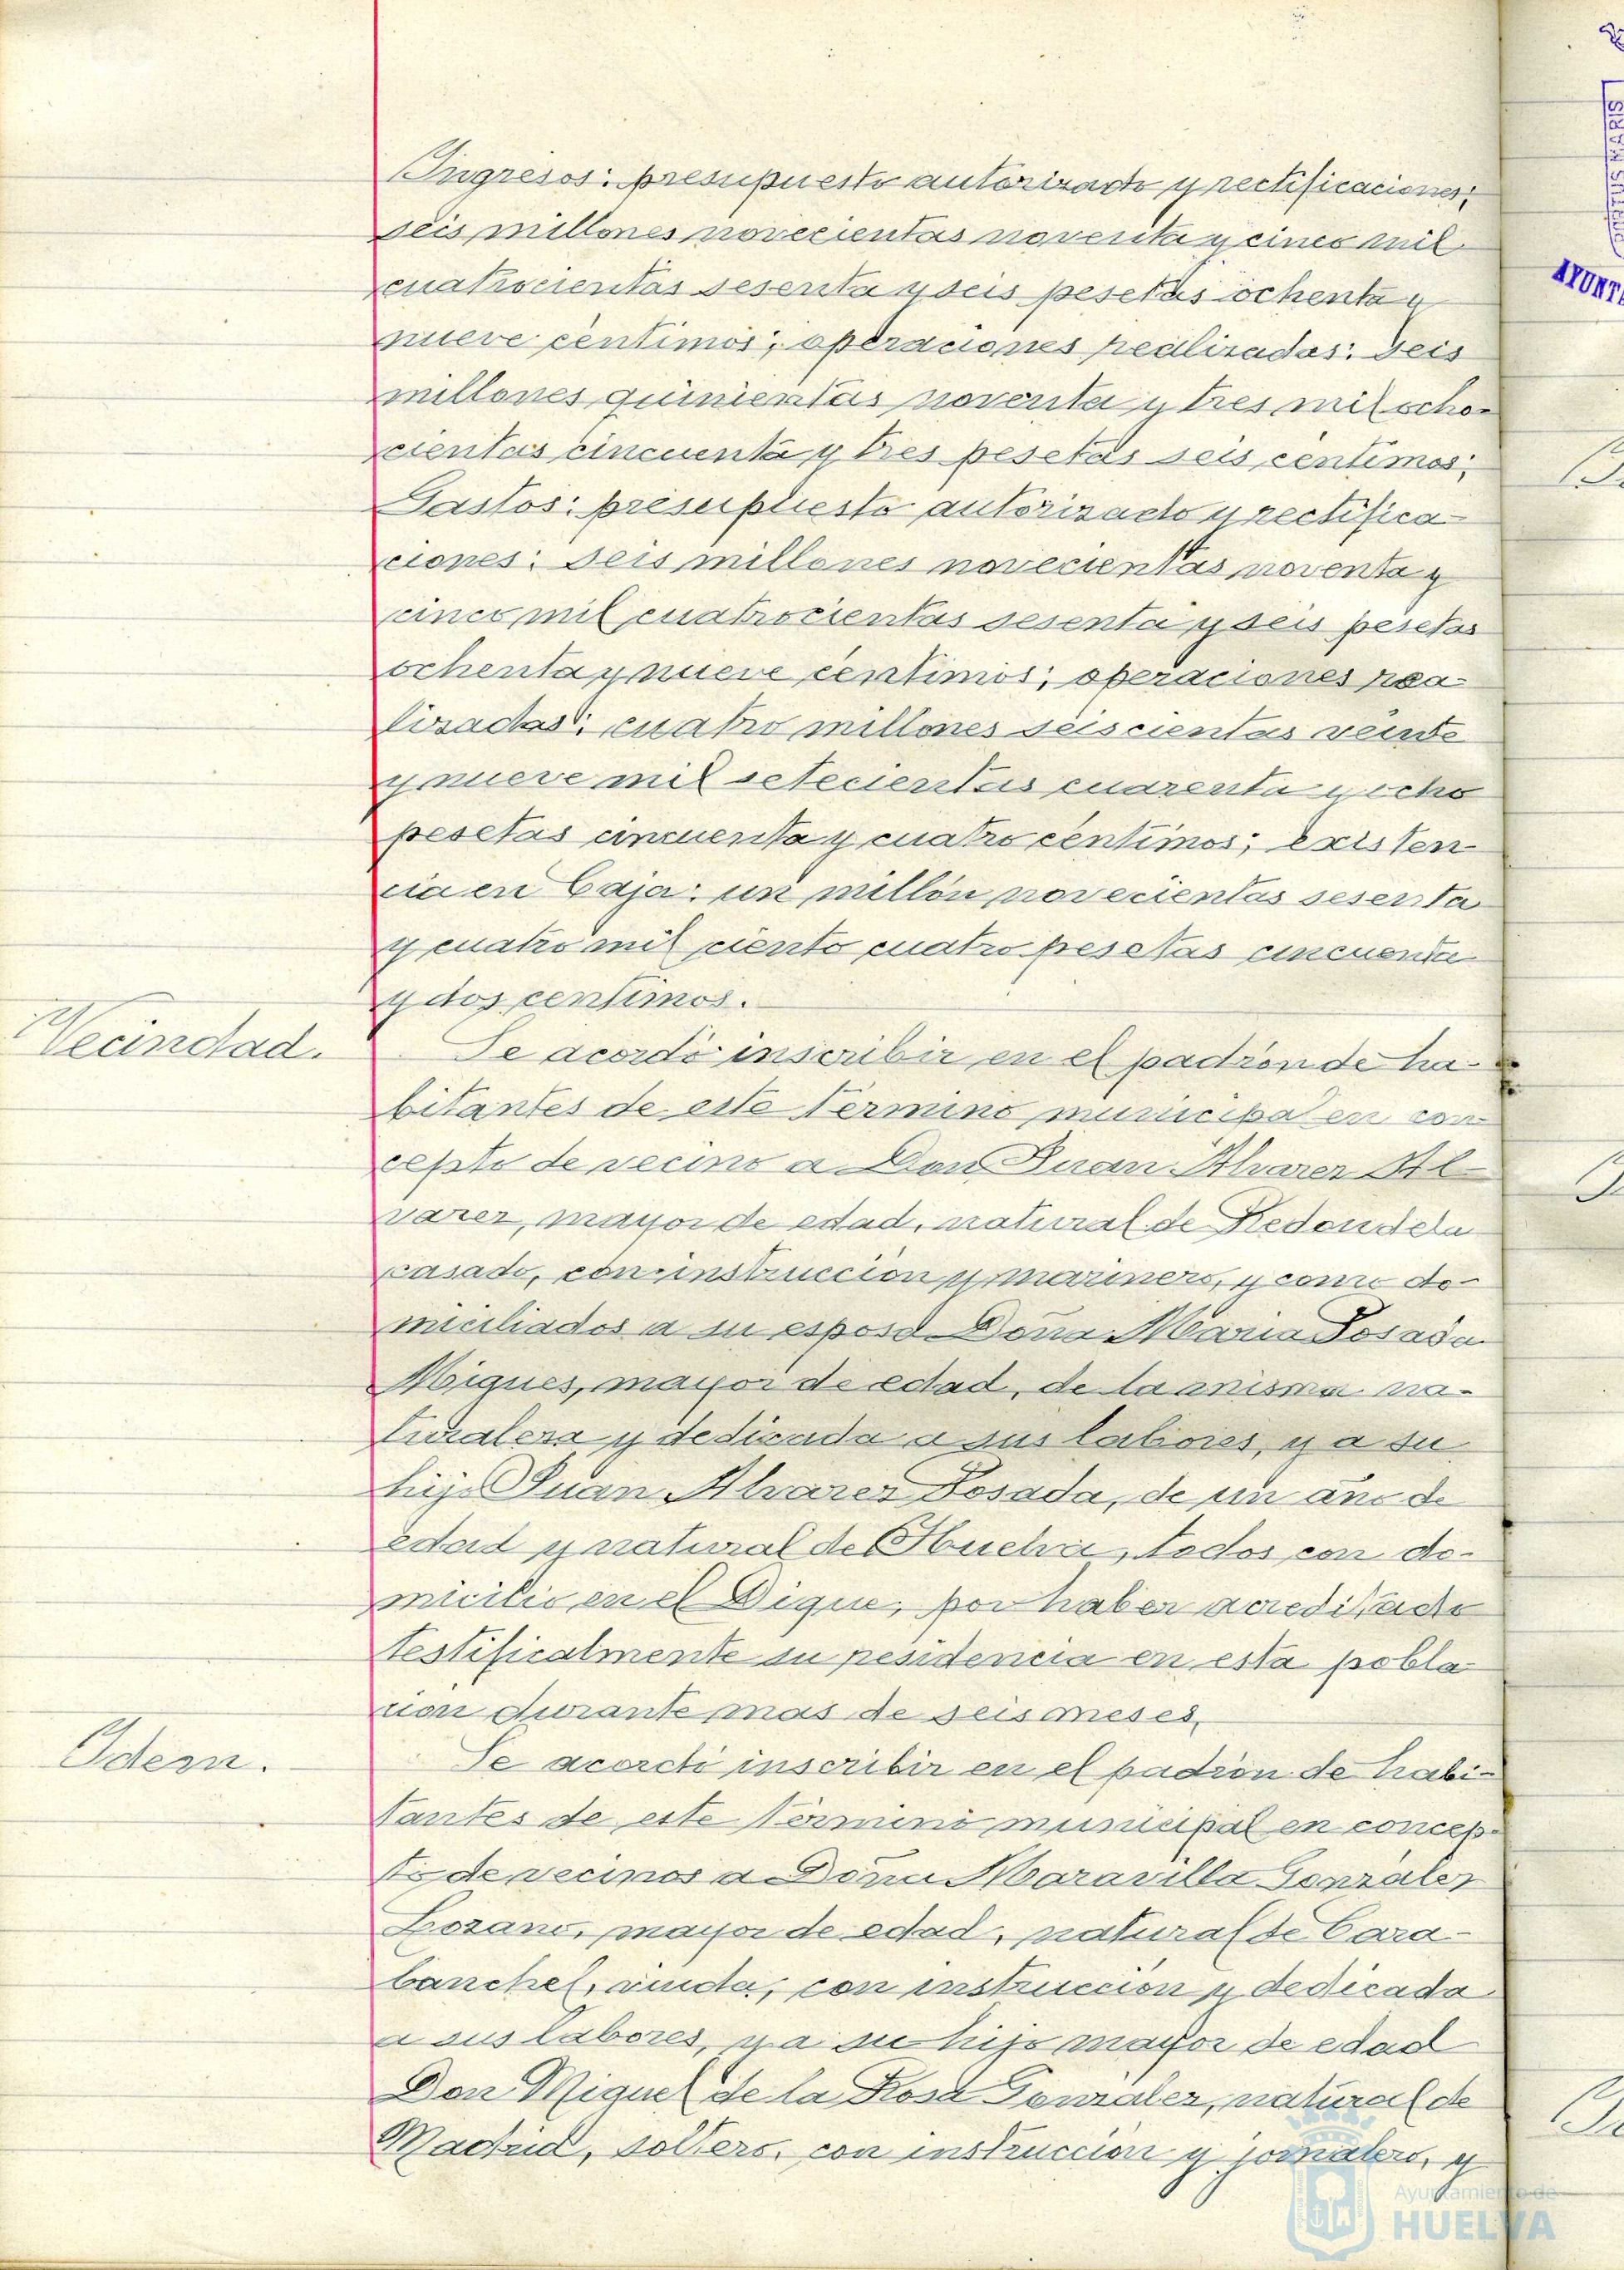 Ingresos: presupuesto autorizado y rectificaciones;
seis millones novecientas noventa y cinco mil
cuatrocientas sesenta y seis pesetas ochenta y
nueve céntimos; operaciones realizadas: seis
millones quinientas noventa y tres mil ocho-
cientas cincuenta y tres pesetas seis céntimos;
Gastos: presupuesto autorizado y rectifica-
ciones: seis millones novecientas noventa y
cinco mil cuatrocientas sesenta y seis pesetas
ochenta y nueve céntimos; operaciones rea-
lizadas: cuatro millones seiscientas veinte
y nueve mil setecientas cuarenta y ocho
pesetas cincuenta y cuatro céntimos; existen-
cia en Caja: un millón novecientas sesenta
y cuatro mil ciento cuatro pesetas cincuenta
y dos centimos.
Vecindad.
Se acordó inscribir en el padrón de ha-
bitantes de este término municipal en con-
cepto de vecino a Don Juan Alvarez Al-
varez, mayor de edad, natural de Redondela
casado, con instrucción y marinero, y como do-
miciliados a su esposa Doña Maria Posada
Migues, mayor de edad, de la misma na-
turaleza y dedicada a sus labores, y a su
hijo Juan Alvarez Posada, de un año de
edad y natural de Huelva, todos con do-
micilio en el Dique, por haber acreditado
testificalmente su residencia en esta pobla-
cion durante mas de seis meses.
Idem.
Se acordó inscribir en el padrón de habi-
tantes de este término municipal en concep-
to de vecinos a Doña Maravilla González
Lozano, mayor de edad, natural de Cara-
banchel, viuda, con instrucción y dedicada
a sus labores, y a su hijo mayor de edad
Don Miguel de la Rosa Gonzalez, natural de
Madrid, soltero, con instrucción y jornalero, y
Ayuntamiento de
HUELVA